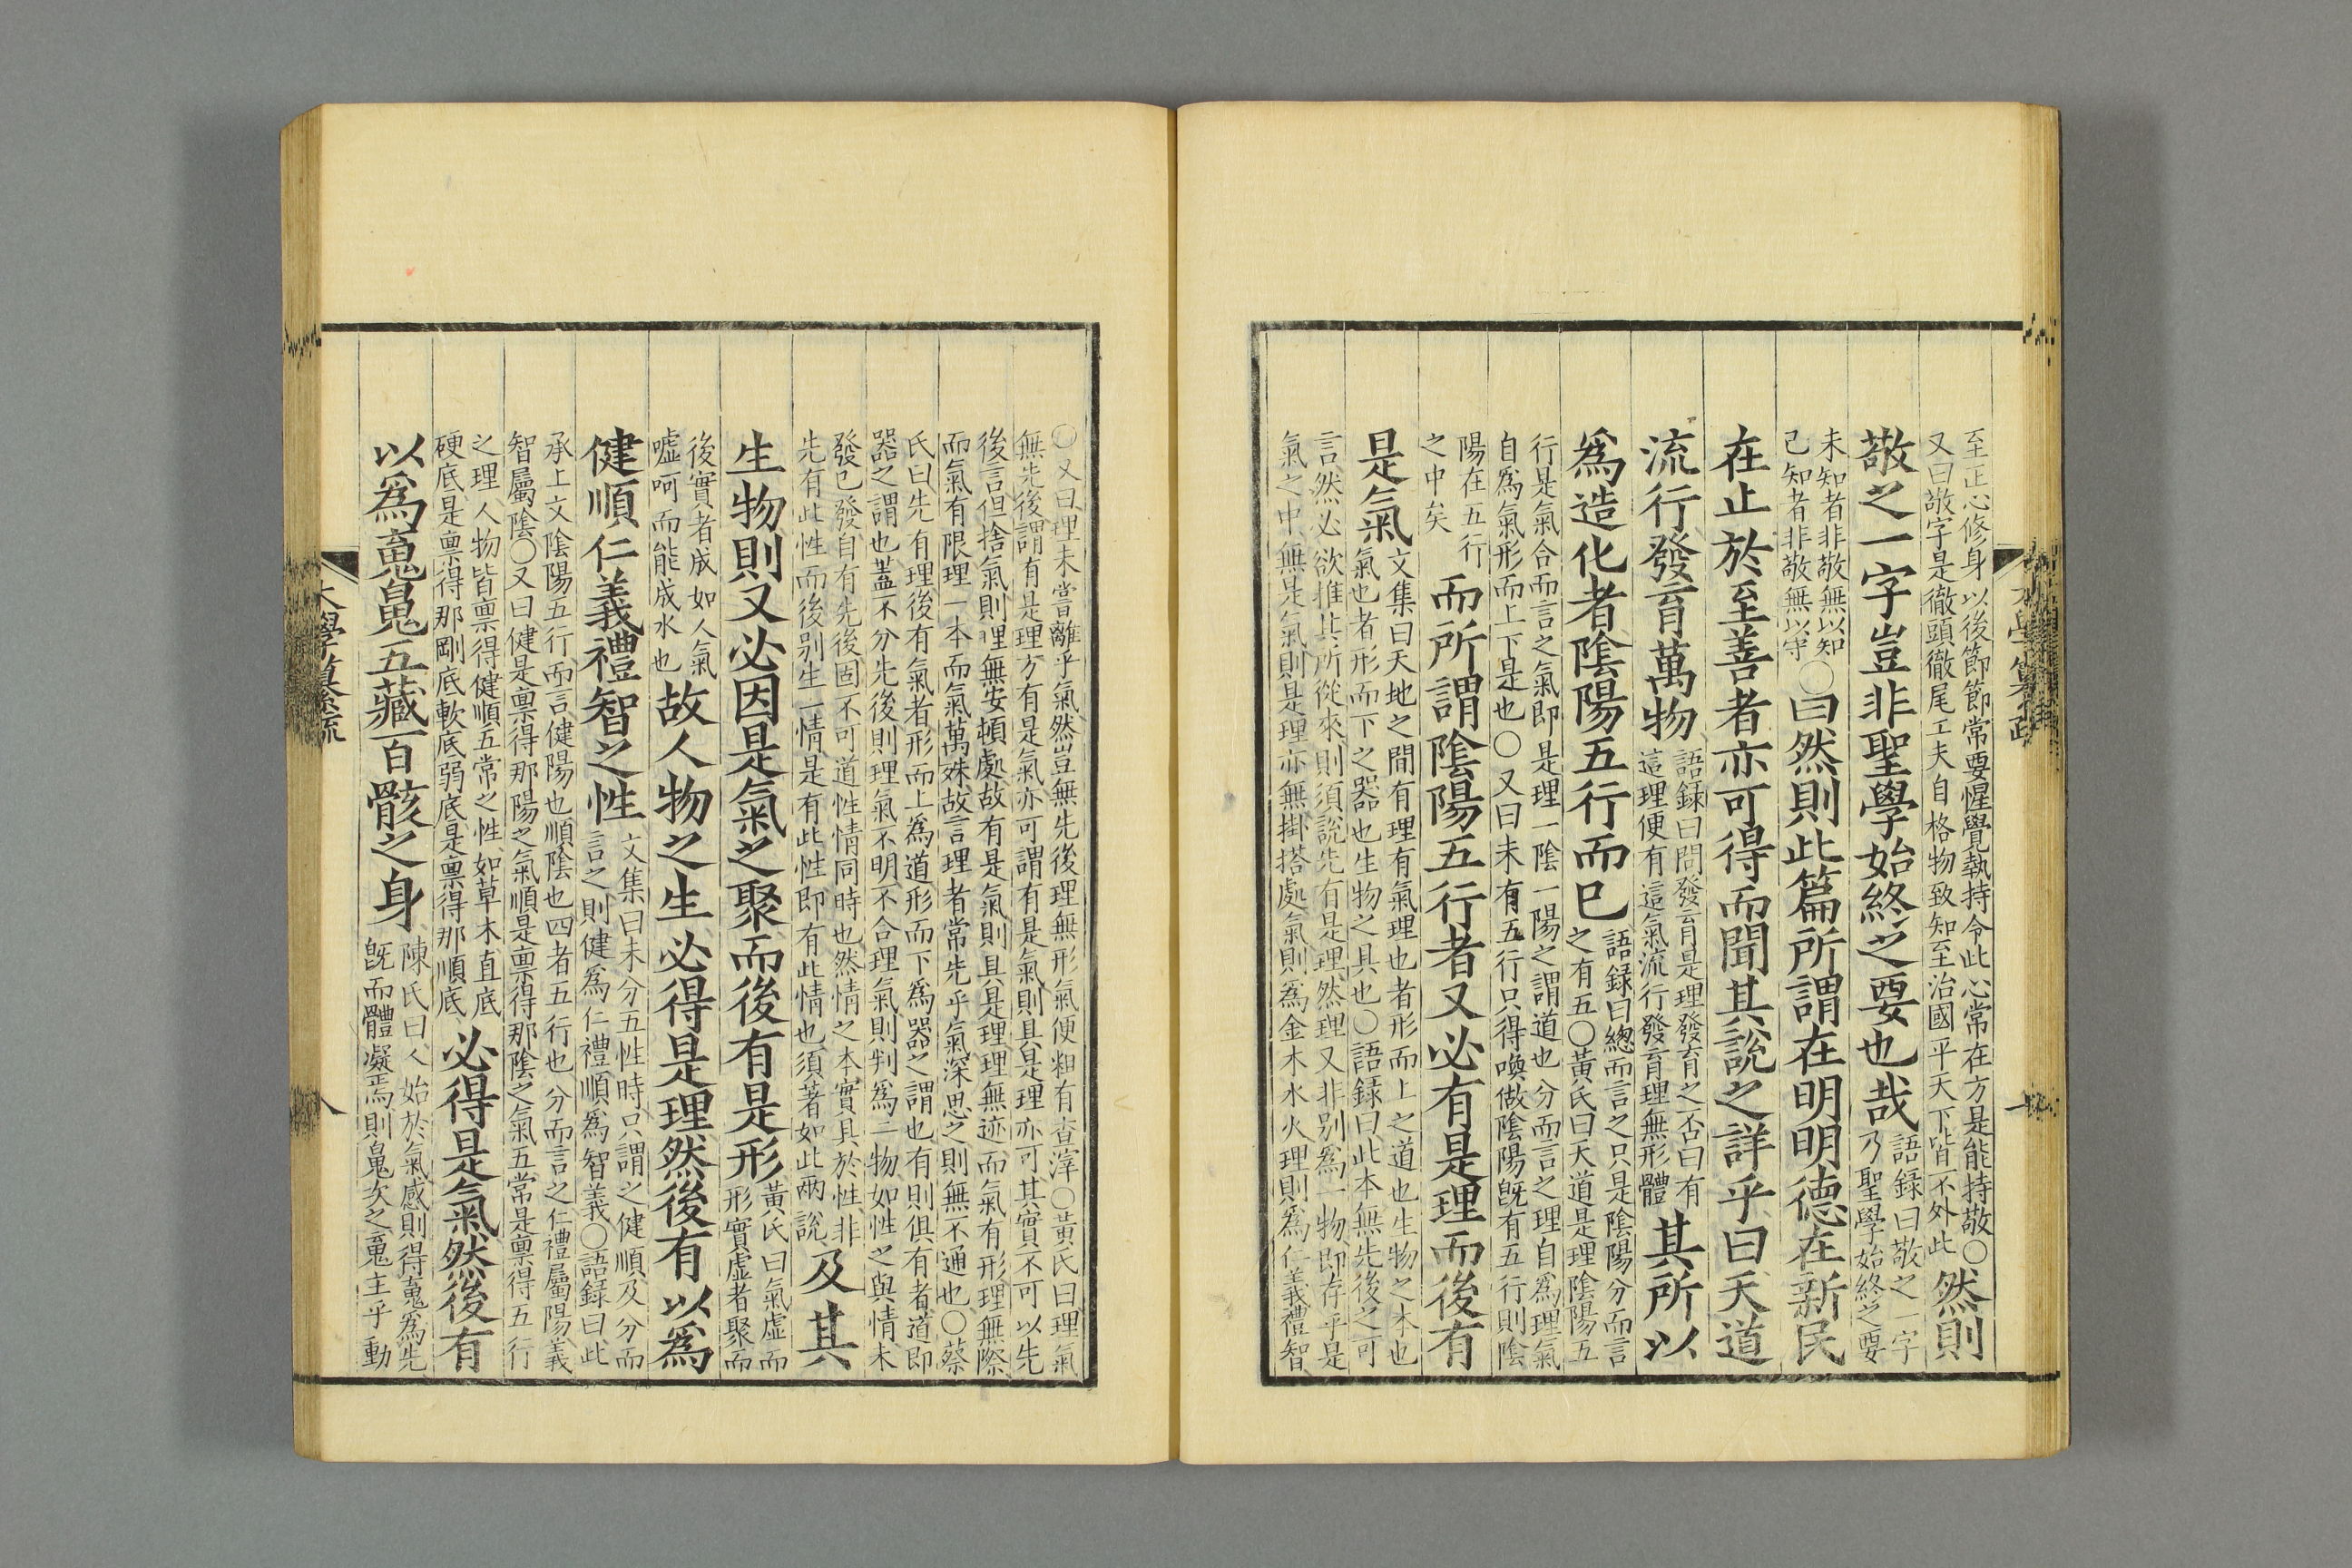 至正心修身以後節節常要惺覺執持令此心常在方是能持敬〇
又曰敬字是徹頭徹尾工夫自格物致知至治國平天下皆不外此
然則
敬之一字豈非聖學始終之要也哉
語録曰敬之一字
乃聖學始終之要
未知者非敬無以知
已知者非敬無以守
〇曰然則此篇所謂在明明德在新民
在止於至善者亦可得而聞其說之詳乎曰天道
流行發育萬物
語録曰問發育是理發育之否曰有
這理便有這氣流行發育理無形體
其所以
爲造化者陰陽五行而已
語録曰緫而言之只是陰陽分而言
之有五〇黃氏曰天道是理陰陽五
行是氣合而言之氣即是理一陰一陽之謂道也分而言之理自爲理氣
自爲氣形而上下是也〇又曰未有五行只得喚做陰陽旣有五行則陰
陽在五行
之中矣
而所謂陰陽五行者又必有是理而後有
是氣
文集曰天地之間有理有氣理也者形而上之道也生物之本也
氣也者形而下之器也生物之具也〇語録曰此本無先後之可
言然必欲推其所從來則須說先有是理然理又非别爲一物即存乎是
氣之中無是氣則是理亦無掛搭處氣則爲金木水火理則爲仁義禮智
〇又曰理未嘗離乎氣然豈無先後理無形氣便粗有査滓〇黃氏曰理氣
無先後謂有是理方有是氣亦可謂有是氣則具是理亦可其實不可以先
後言但捨氣則理無安頓處故有是氣則具是理理無迹而氣有形理無際
而氣有限理一本而氣萬殊故言理者常先乎氣深思之則無不通也〇蔡
氏曰先有理後有氣者形而上爲道形而下爲器之謂也有則俱有者道即
器之謂也蓋不分先後則理氣不明不合理氣則判爲二物如性之與情未
發已發自有先後固不可道性情同時也然情之本實具於性非
先有此性而後别生一情是有此性即有此情也須著如此兩說
及其
生物則又必因是氣之聚而後有是形
黃氏曰氣虛而
形實虛者聚而
後實者成如人氣
噓呵而能成水也
故人物之生必得是理然後有以爲
健順仁義禮智之性
文集曰未分五性時只謂之健順及分而
言之則健爲仁禮順爲智義〇語録曰此
承上文陰陽五行而言健陽也順陰也四者五行也分而言之仁禮屬陽義
智屬陰〇又曰健是禀得那陽之氣順是禀得那陰之氣五常是禀得五行
之理人物皆禀得健順五常之性如草木直底
硬底是禀得那剛底軟底弱底是禀得那順底
必得是氣然後有
以爲䰟魄五藏百骸之身
陳氏曰人始於氣感則得䰟爲先
旣而體凝焉則魄次之䰟主乎動
大學纂疏
八